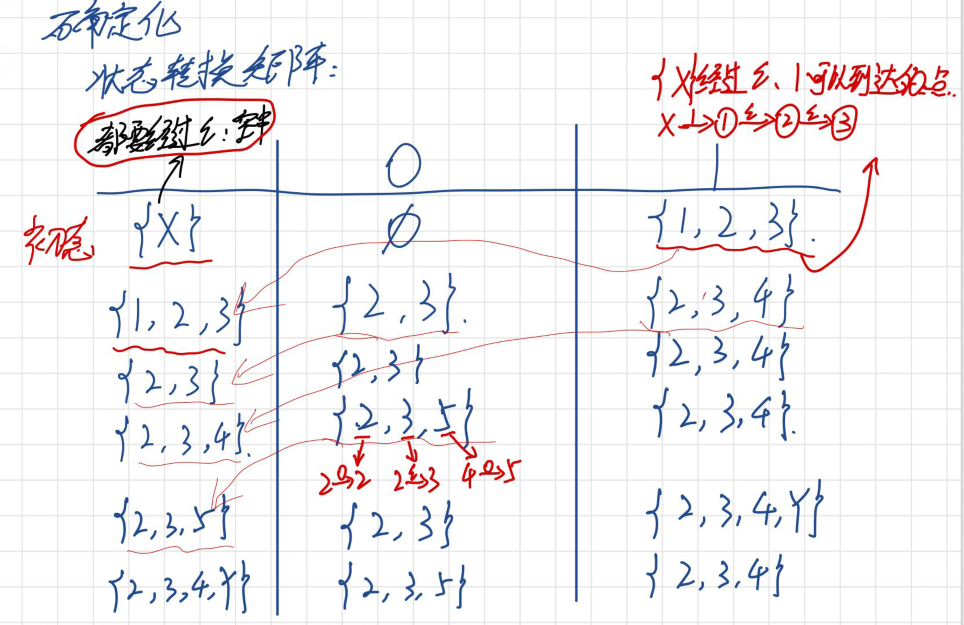 确定化
状态转换矩阵:
{X}经过ε、1可以到达的点.
X 1→① ε→② ε→③
都要经过ε:空串
0 1
初态 {X} ∅ {1,2,3}.
{1,2,3} {2,3}. {2,3,4}
{2,3} {2,3} {2,3,4}
{2,3,4}. {2,3,5} {2,3,4}.
2 0→2 2 ε→3 4 0→5
{2,3,5} {2,3} {2,3,4,Y}
{2,3,4,Y} {2,3,5} {2,3,4}